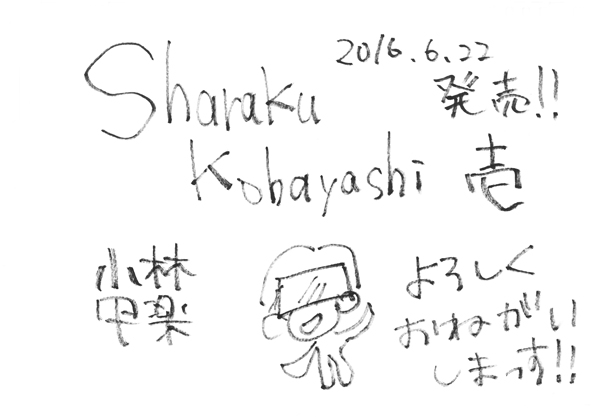 Sharaku
2016.6.22
発売!!
Kobayashi 壱
小林
写楽
よろしく
おねがい
しまっす!!